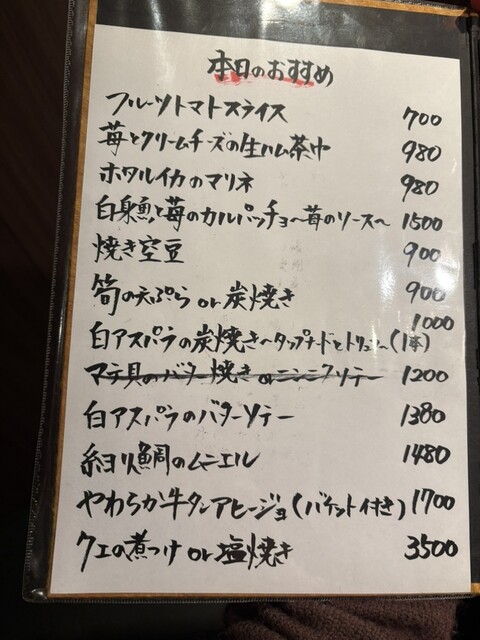 本日のおすすめ
フルーツトマトスライス 700
苺とクリームチーズの生ハム茶巾 980
ホタルイカのマリネ 980
白身魚と苺のカルパッチョ〜苺のソース〜 1500
焼き空豆 900
筍の天ぷら or 炭焼き 900
1000
白アスパラの炭焼き〜タップナードとトリュフ〜(1本)
マテ貝のバター焼き orニンニクソテー 1200
白アスパラのバターソテー 1380
細ヨリ鯛のムニエル 1480
やわらか牛タンアヒージョ(バケット付き) 1700
クエの煮つけ or 塩焼き 3500